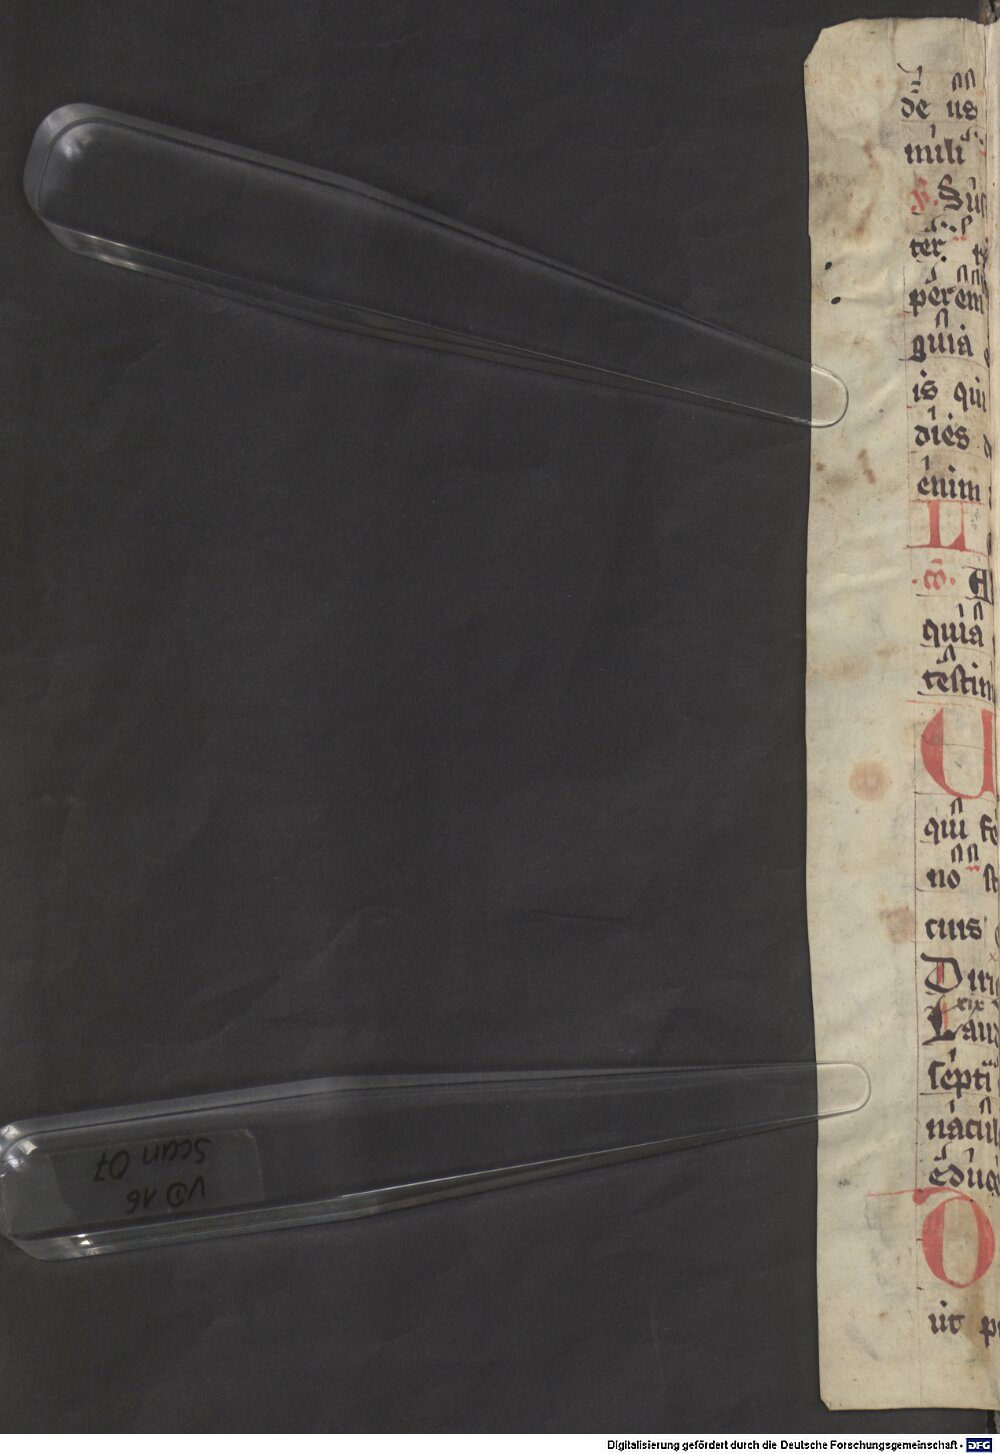 de us
mili
Sus
ter
perem
guia
is qui
dies d
enim
L
quia
testim
U
qui fe
no st
cuis
Diri
xix
Laud
septi
nacul
educ
D
ut p
Scan 07
VD 16
Digitalisierung gefördert durch die Deutsche Forschungsgemeinschaft - DFG